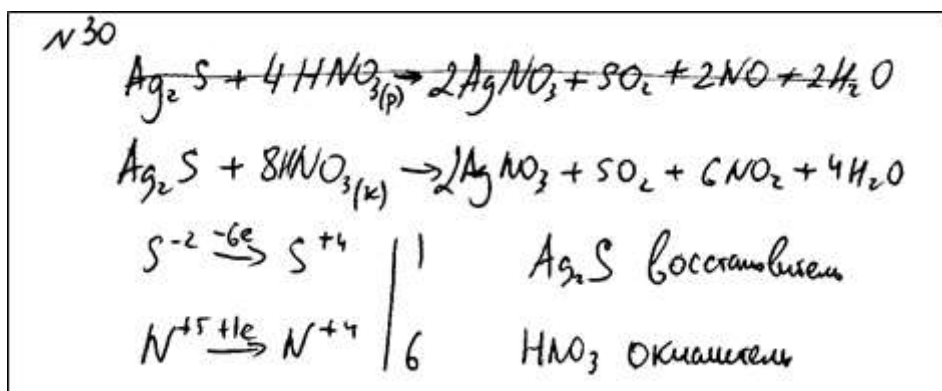 №30
Ag₂S + 4HNO₃(р) → 2AgNO₃ + SO₂ + 2NO + 2H₂O
Ag₂S + 8HNO₃(к) → 2AgNO₃ + SO₂ + 6NO₂ + 4H₂O
S⁻² -6e → S⁺⁴ | 1 Ag₂S восстановитель
N⁺⁵ +1e → N⁺⁴ | 6 HNO₃ окислитель